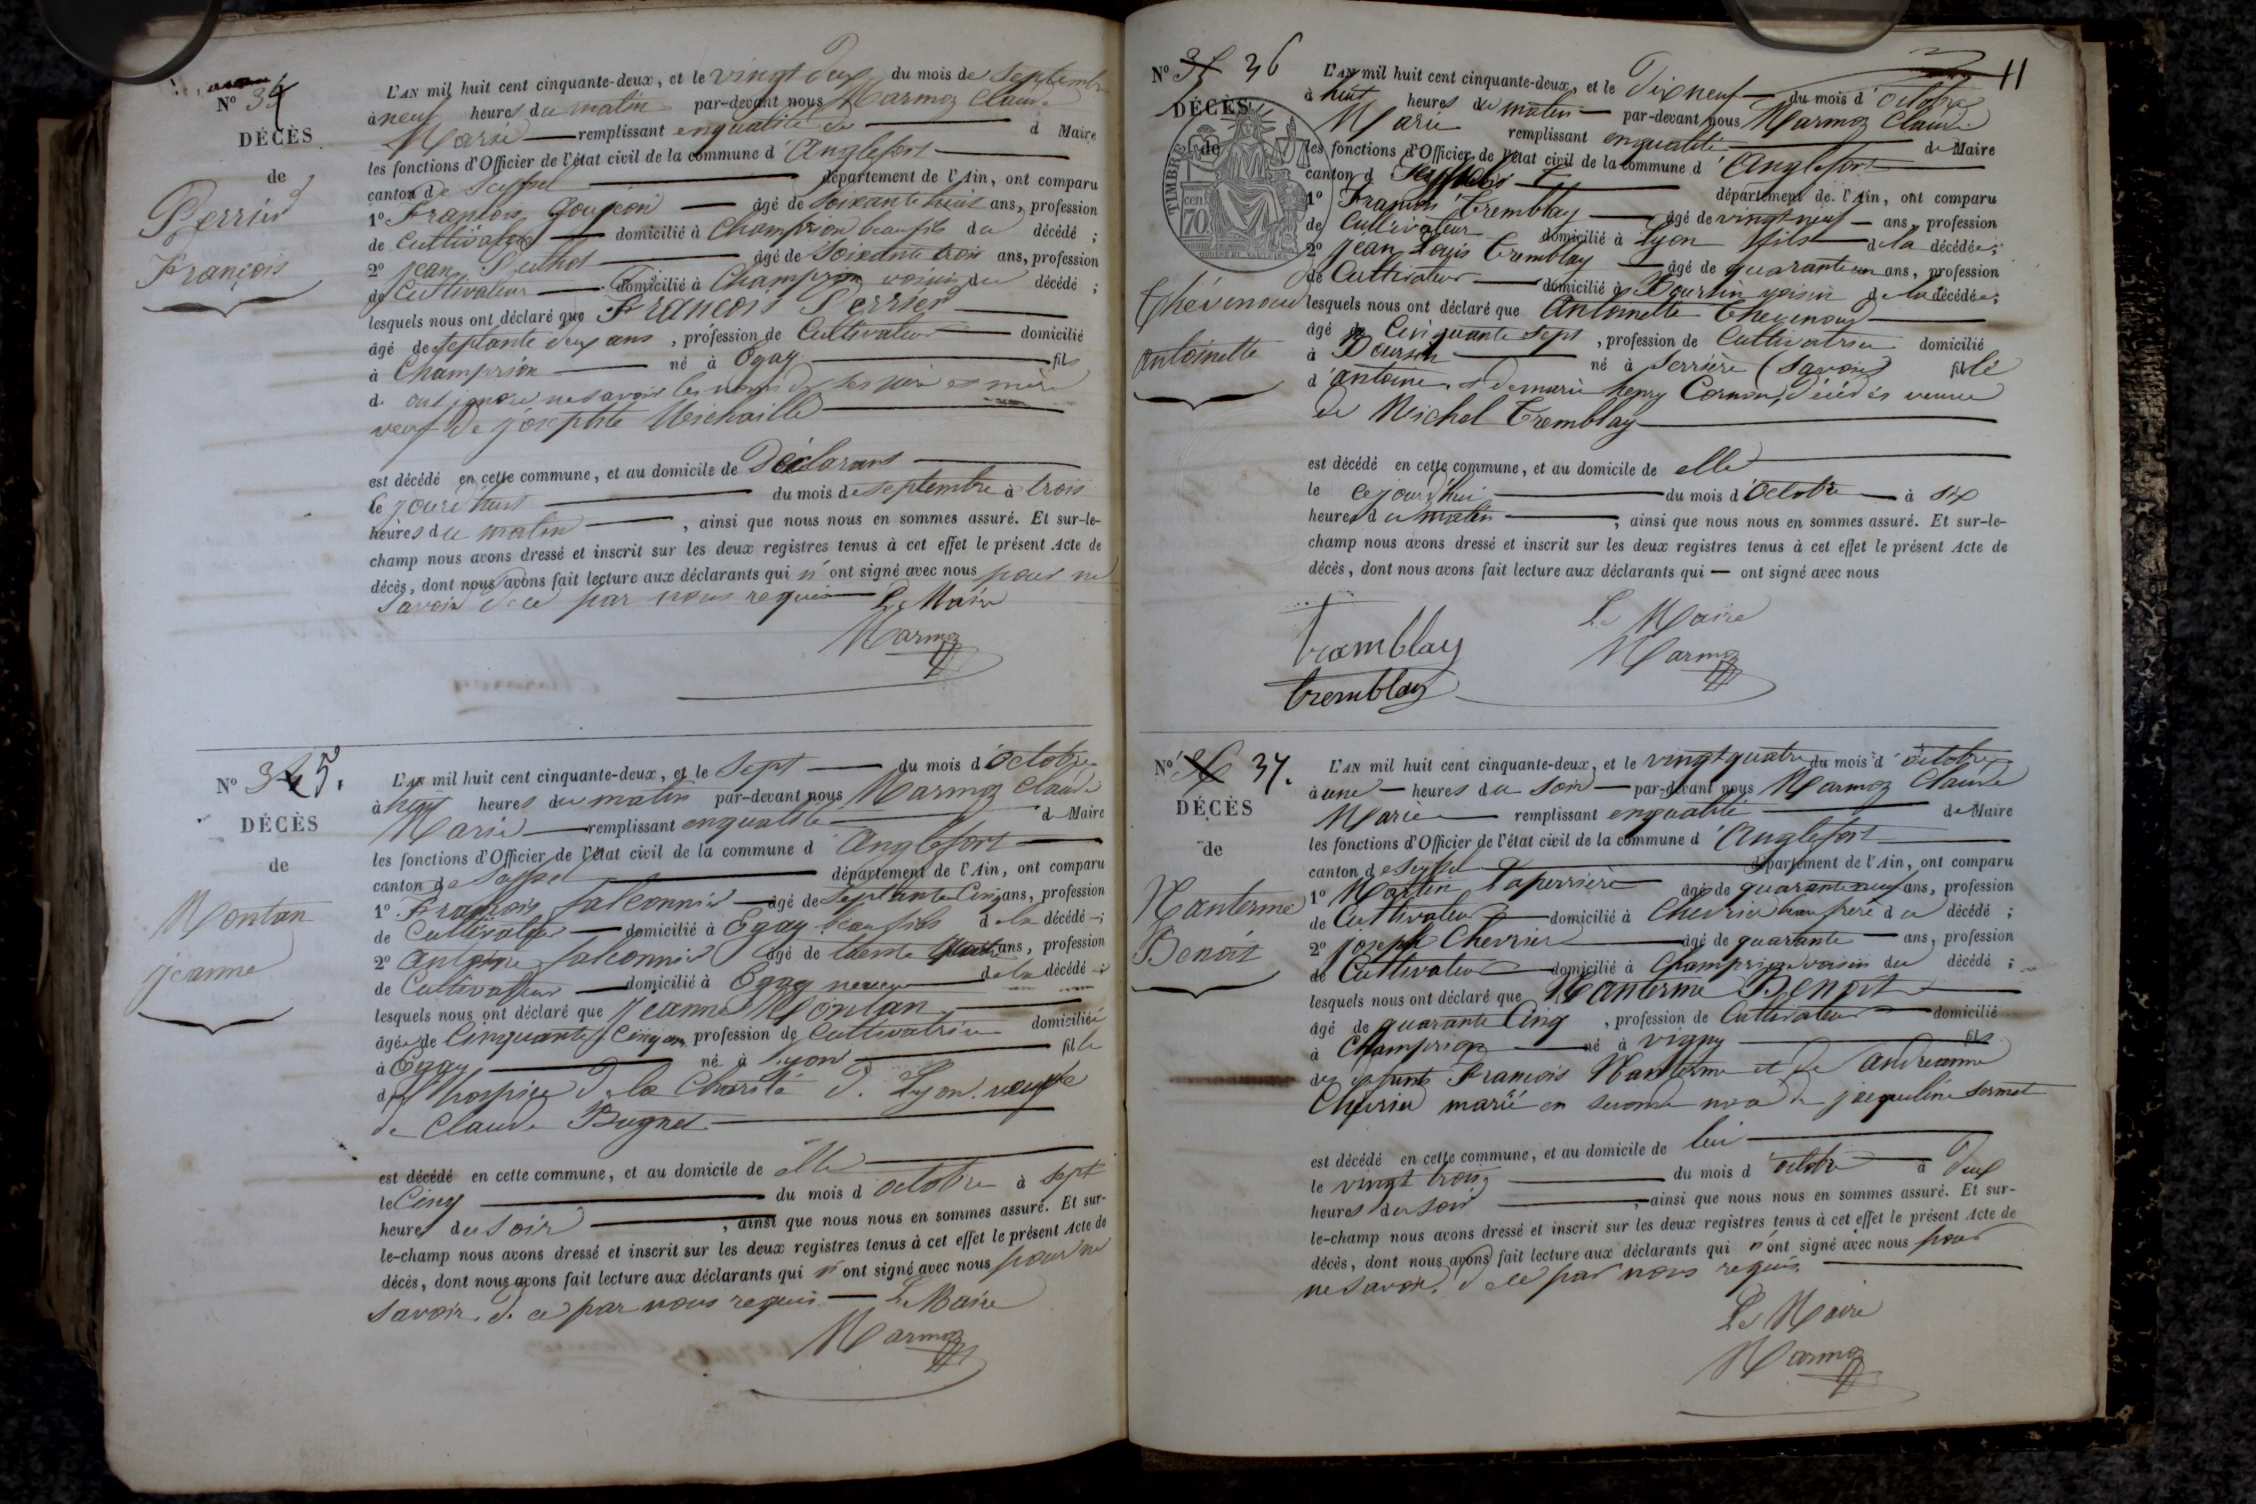 Nº 34
DÉCÈS
de
Perrier
François
L'AN mil huit cent cinquante-deux, et le vingt deux du mois de Septembre
à neuf heures du matin par-devant nous Marmoz Claude
Marie remplissant enqualité de d Maire
les fonctions d'Officier de l'état civil de la commune d'Anglefort
canton de Seyssel département de l'Ain, ont comparu
1º François Goujon âgé de Soixante huit ans, profession
de Cultivateur domicilié à Champrion beaufils du décédé ;
2º Jean âgé de Soixante trois ans, profession
de Cultivateur domicilié à Champrion voisin du décédé ;
lesquels nous ont déclaré que François Perrier
âgé de septante deux ans, profession de Cultivateur domicilié
à Champrion né à Ogay fils
d ont ignore ne savoir les noms de ses père et mère
veuf de josephte Michaille
est décédé en cette commune, et au domicile de Déclarant
le jourd'hui du mois de septembre à trois
heures du matin, ainsi que nous nous en sommes assuré. Et sur-le-
champ nous avons dressé et inscrit sur les deux registres tenus à cet effet le présent Acte de
décès, dont nous avons fait lecture aux déclarants qui n'ont signé avec nous pour ne
savoir de ce par nous requis Le Maire
Marmoz
Nº 35.
DÉCÈS
de
Montan
jeanne
L'AN mil huit cent cinquante-deux, et le Sept du mois d'Octobre
à huit heures du matin par-devant nous Marmoz Claude
Marie remplissant enqualité d Maire
les fonctions d'Officier de l'état civil de la commune d'Anglefort
canton de Seyssel département de l'Ain, ont comparu
1º François falconnier âgé de Septante Cinq ans, profession
de Cultivateur domicilié à Egay beaufils de la décédé ;
2º antoine falconnier âgé de trente quatre ans, profession
de Cultivateur domicilié à Egay neveu de la décédé ;
lesquels nous ont déclaré que jeanne Montan
âgée de Cinquante Cinq ans, profession de Cultivatrice domiciliée
à Egay né à Lyon fille
de l'hospice de la Charité de Lyon. veuve
de Claude Bugnet
est décédé en cette commune, et au domicile de elle
le Cinq du mois d'octobre à sept
heures du soir, ainsi que nous nous en sommes assuré. Et sur-
le-champ nous avons dressé et inscrit sur les deux registres tenus à cet effet le présent Acte de
décès, dont nous avons fait lecture aux déclarants qui n'ont signé avec nous pour ne
savoir. de ce par nous requis Le Maire
Marmoz
11
Nº 35 36
DÉCÈS
de
TIMBRE
70 cent
Thévenoud
antoinette
L'AN mil huit cent cinquante-deux, et le Dix neuf du mois d'octobre
à huit heures du matin par-devant nous Marmoz Claude
Marie remplissant enqualité de Maire
les fonctions d'Officier de l'état civil de la commune d'Anglefort
canton d Seyssel département de l'Ain, ont comparu
1º François Tremblay âgé de vingt neuf ans, profession
de Cultivateur domicilié à Lyon fils de la décédée ;
2º jean Louis Tremblay âgé de quarante un ans, profession
de Cultivateur domicilié à Boursin voisin de la décédée ;
lesquels nous ont déclaré que Antoinette Thevenoud
âgé de Cinquante Sept, profession de Cultivatrice domicilié
à Boursin né à Serrière (Savoie) fille
d'antoine, et de marie henry Cornon, décédés veuve
de Michel Tremblay
est décédé en cette commune, et au domicile de elle
le cejourd'hui du mois d'Octobre à six
heures du matin, ainsi que nous nous en sommes assuré. Et sur-le-
champ nous avons dressé et inscrit sur les deux registres tenus à cet effet le présent Acte de
décès, dont nous avons fait lecture aux déclarants qui — ont signé avec nous
Le Maire
Tramblay
Marmoz
tremblay
Nº 36 37.
DÉCÈS
de
Nanterme
Benoit
L'AN mil huit cent cinquante-deux, et le vingt quatre du mois d'octobre
à une heures du soir par-devant nous Marmoz Claude
Marie remplissant enqualité de Maire
les fonctions d'Officier de l'état civil de la commune d'Anglefort
canton de Seyssel département de l'Ain, ont comparu
1º Martin Laperrière âgé de quarante neuf ans, profession
de Cultivateur domicilié à Chevrier beau frère du décédé ;
2º joseph Chevrier âgé de quarante ans, profession
de Cultivateur domicilié à Champrion voisin du décédé ;
lesquels nous ont déclaré que Nanterme Benoit
âgé de quarante Cinq, profession de Cultivateur domicilié
à Champrion né à vigny fils
de defunts François Nanterme et de andreanne
Chevrier marié en seconde noce de jacqueline Sermet
est décédé en cette commune, et au domicile de lui
le vingt trois du mois d'octobre à Deux
heures du soir, ainsi que nous nous en sommes assuré. Et sur-
le-champ nous avons dressé et inscrit sur les deux registres tenus à cet effet le présent Acte de
décès, dont nous avons fait lecture aux déclarants qui n'ont signé avec nous pour
ne savoir. de ce par nous requis.
Le Maire
Marmoz